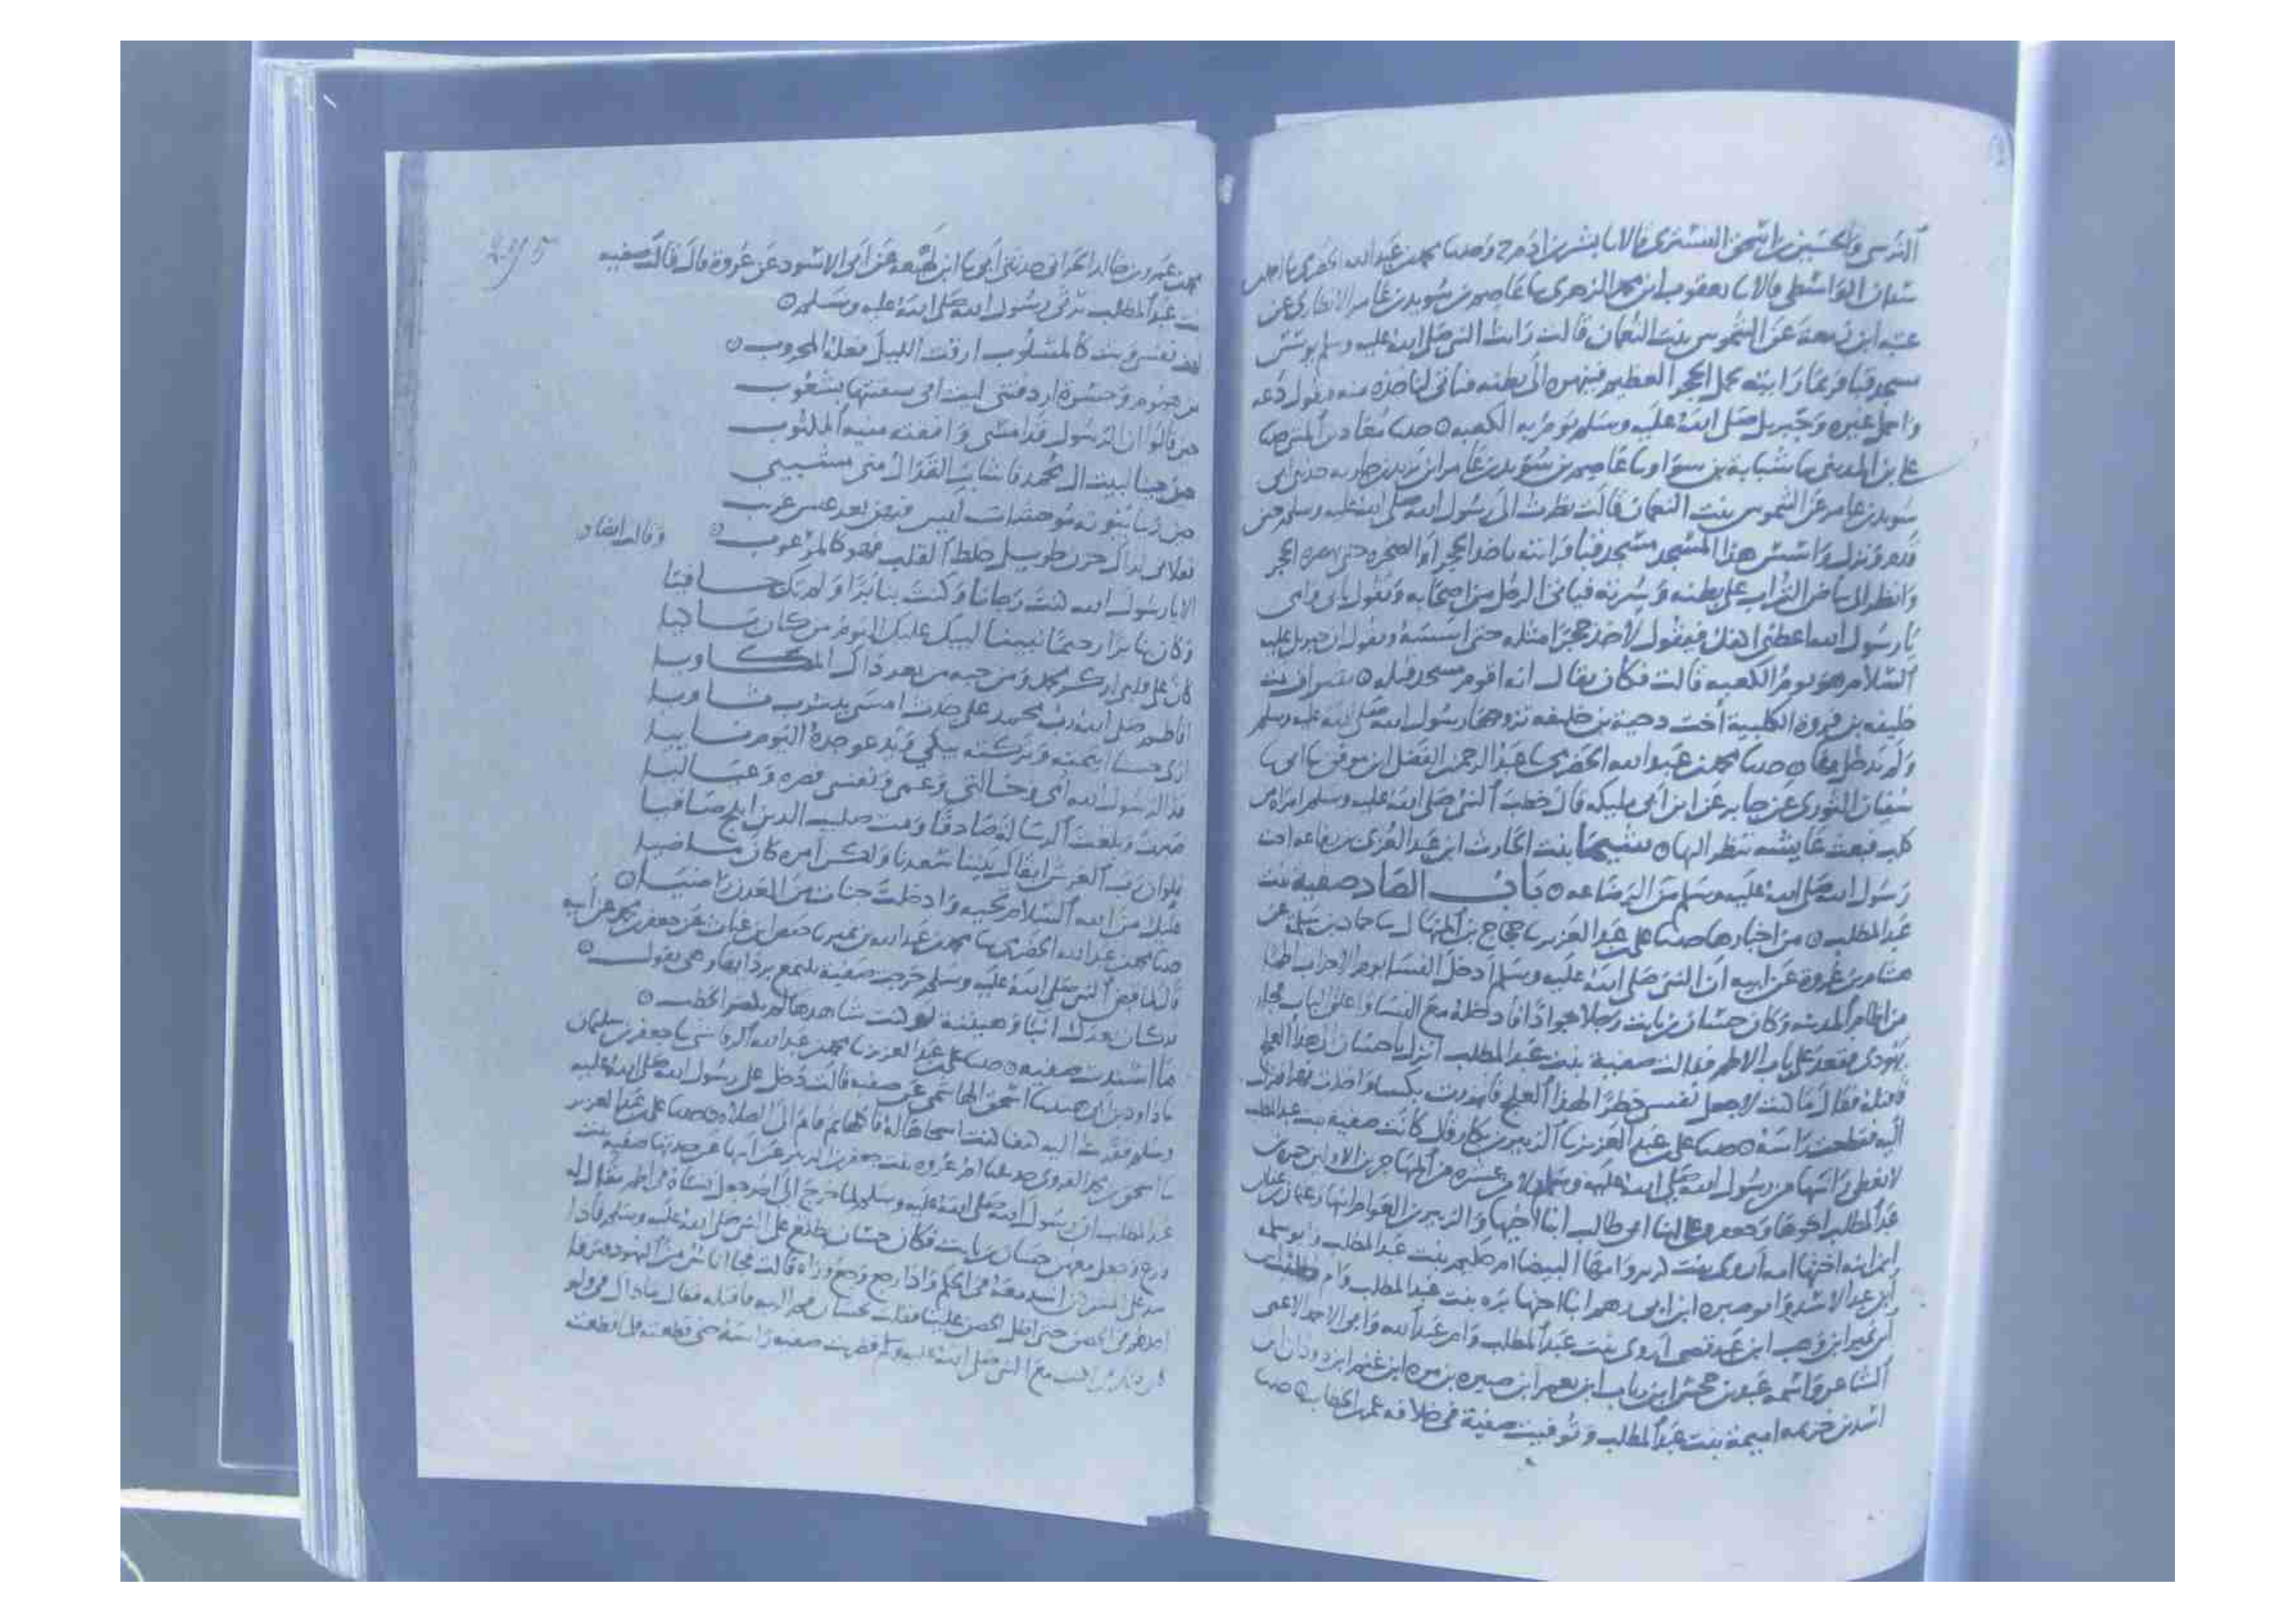 النرسي والحسين بن اسحق التستري قالا نا بشر بن ادم ح وحدثنا محمد بن عبد الله الحضرمي نا احمد بن
سنان الواسطي قالا نا يعقوب ابن محمد الزهري نا عاصم بن سويد بن عامر الانصاري عن
عتبة ابن عن الشموس بنت النعمان قالت رايت النبي صلى الله عليه وسلم يوسس
مسجد قبا فربما رايته يحمل الحجر العظيم فينهره الى بطنه فياتي لياخذه منه فيقول دعه
واحمل غيره وجبريل صلى الله عليه وسلم يوم به الكعبه حدثنا معاذ بن المثنى نا
علي بن المديني نا شبابة بن سوار نا عاصم بن سويد بن عامر ابن يزيد بن جارية حدثني ابي
سويد بن عامر عن الشموس بنت النعمان قالت نظرت الى رسول الله صلى الله عليه وسلم حين
قدم ونزل واسس هذا المسجد مسجد قبا فرايته ياخذ الحجر او الصخره حتى يهصره الحجر
وانظر الى بياض التراب على بطنه وسرته فياتي الرجل من اصحابه ويقول بابي وامي
يا رسول الله اعطني اكفك فيقول لا خذ حجرا مثله حتى اسسه ويقول ان جبريل عليه
السلام هو يوم الكعبه قالت فكان يقال انه اقوم مسجد قبله شراف بنت
خليفه بن فروة الكلبية اخت دحية بن خليفه تزوجها رسول الله صلى الله عليه وسلم
ولم يدخل بها حدثنا محمد بن عبد الله الحضرمي نا عبد الرحمن ابن الفضل ابن موفق نا ابي نا
سفيان الثوري عن جابر عن ابن ابي مليكه قال خطب النبي صلى الله عليه وسلم امراة من
كلب فبعث عايشه تنظر اليها شيما بنت الحارث ابن عبد العزى بن رفاعه اخت
رسول الله صلى الله عليه وسلم من الرضاعه باب الصاد صفيه بنت
عبد المطلب من اخبارها حدثنا علي بن عبد العزيز نا حجاج بن المنهال نا حماد بن سلمة عن
هشام بن عروة عن ابيه ان النبي صلى الله عليه وسلم ادخل النسا يوم الاحزاب اطما
من اطام المدينه وكان حسان بن ثابت رجلا جوادا فادخله مع النسا واغلق الباب فجا
يهودي فقعد على باب الاطم فقالت صفية بنت عبد المطلب انزل يا حسان لهذا العلج
فاقتله فقال ما كنت لاجعل نفسي خطرا لهذا العلج فاتزرت بكسا واخذت فهرا فنزلت
اليه فقطعت راسه حدثنا علي بن عبد العزيز نا الزبير بن بكار قال كانت صفيه بنت عبد المطلب
لا تغطي راسها من رسول الله صلى الله عليه وسلم ولا من عشره من المهاجرين الاولين حمزة بن
عبد المطلب اخوها وجعفر وعلي ابنا ابي طالب ابنا اخيها والزبير بن العوام ابنها وعثمان بن عفان
ابن ابنة اختها امه اروى بنت كريز وامها البيضا ام حكيم بنت عبد المطلب وابو سلمه
ابن عبد الاسد وابو سبره ابن ابي رهم ابنا اختها بره بنت عبد المطلب
ابن عمير ابن وهب ابن عبد قصي اروى بنت عبد المطلب وامر عبد الله وابي احمد الاعمى
الشاعر واسمه عبد بن جحش ابن رياب ابن يعمر ابن صبره بن مره ابن غنم ابن دودان ابن
اسد بن خزيمه اميمة بنت عبد المطلب وتوفيت صفية في خلافه عمر بن الخطاب حدثنا
295
محمد بن عمرو بن خالد الحراني حدثني ابي نا ابن لهيعه عن ابي الاسود عن عروة قال قالت صفيه
بنت عبد المطلب ترثي رسول الله صلى الله عليه وسلم
لهف نفسي وبت كالمسلوب ارقت الليل فعلة المحروب
من هموم وحسرة اردفتني ليت اني سقيتها بشعوب
حين قالوا ان الرسول قد امسى وافقته منيه المكتوب
حين جينا لبيت ال محمد فاشاب القذال مني مشيبي
حين رينا بيوته موحشات ليس فيهن بعد عيش غريب
فعلاني لذاك حزن طويل خلط القلب فهو كالمرعوب وقالت ايضا
الا يا رسول الله كنت رجانا وكنت بنا برا ولم تك جافيا
وكان بنا برا رحيما نبينا ليبك عليك اليوم من كان باكيا
كان على قلبي لذكر محمد ومن حبه من بعد ذاك المكاويا
افاطم صلى الله رب محمد على جدث امسى بيثرب ثاويا
ارى حسنا ايتمته وتركته يبكي ويدعو جده اليوم نائيا
فدا لرسول الله امي وخالتي وعمي ونفسي قصره وعياليا
صبرت وبلغت الرسالة صادقا ومت صليب الدين ابلج صافيا
فلو ان رب العرش ابقاك بيننا سعدنا ولكن امره كان ماضيا
عليك من الله السلام تحيه وادخلت جنات من العدن راضيا
حدثنا محمد بن عبد الله الحضرمي نا محمد بن عبد الله بن نمير نا حفص ابن غياث عن جعفر بن محمد عن ابيه
قال لما قبض النبي صلى الله عليه وسلم خرجت صفية تلمع بردايها وهي تقول
قد كان بعدك انبا وهينمة لو كنت شاهدها لم يكثر الخطب
ما اسندت صفيه حدثنا علي بن عبد العزيز نا محمد بن عبد الله الرقاشي نا جعفر بن سليمان
نا داود بن ابي هند نا اسحق الهاشمي عن صفيه قالت دخل علي رسول الله صلى الله عليه
وسلم فقربت اليه كتفا فاكلها ثم قام الى الصلاه حدثنا علي بن عبد العزيز
نا اسحق بن محمد الفروي حدثتنا ام عروه بنت جعفر بن الزبير عن ابيها عن جدتها صفيه بنت
عبد المطلب ان رسول الله صلى الله عليه وسلم لما خرج الى احد جعل نساه في اطم يقال له
فارع وجعل معهن حسان بن ثابت فكان حسان يطلع على النبي صلى الله عليه وسلم فاذا
شد على المشركين اشتد معه في الحصن واذا رجع رجع وراه قالت فجا اناس من اليهود فترقا
احدهم في الحصن حتى اطل علينا فقلت لحسان قم اليه فاقتله فقال ما ذاك في ولو
كان ذاك في لكنت مع النبي صلى الله عليه وسلم فضربت صفيه راسه حتى قطعته فلما قطعته